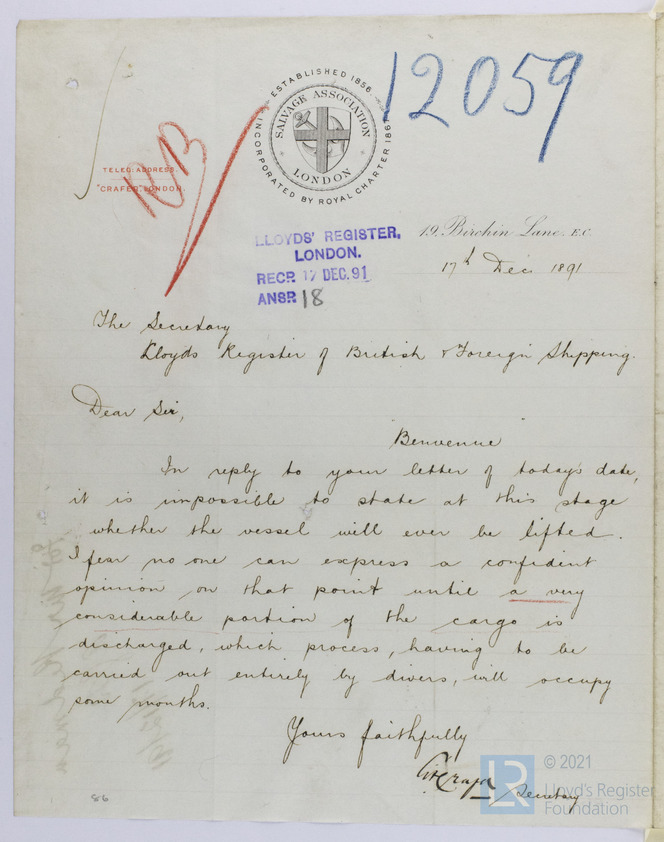 12059
RB
ESTABLISHED 1856
SALVAGE ASSOCIATION
LONDON
INCORPORATED BY ROYAL CHARTER 186
TELEG: ADDRESS.
"CRAFED, LONDON.
19, Birchin Lane, E.C.
LLOYDS' REGISTER,
LONDON.
RECD. 17 DEC. 91
ANSD. 18
17th Dec 1891
The Secretary
Lloyds Register of British & Foreign Shipping.
Dear Sir,
"Benvenue"
In reply to your letter of today's date,
it is impossible to state at this stage
whether the vessel will ever be lifted.
I fear no one can express a confident
opinion on that point until a very
considerable portion of the cargo is
discharged, which process, having to be
carried out entirely by divers, will occupy
some months.
Yours faithfully
Secretary
86
LR
© 2021
Lloyd's Register
Foundation